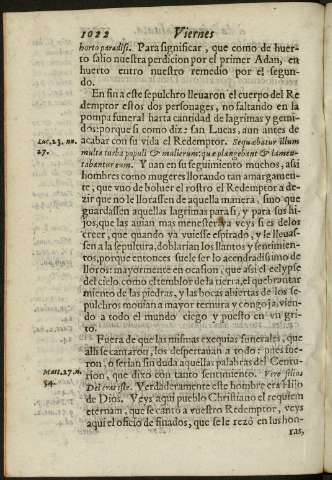 1022 Viernes
horto paradisi. Para significar, que como de huer-
to salio nuestra perdicion por el primer Adan, en
huerto entro nuestro remedio por el segun-
do.
En fin a este sepulchro lleuaron el cuerpo del Re
demptor estos dos personages, no faltando en la
pompa funeral harta cantidad de lagrimas y gemi-
dos: porque si como dize san Lucas, aun antes de
Luc. 23. nu.
27.
acabar con su vida el Redemptor. Sequebatur illum
multa turba populi & mulierum: quæ plangebant & lamen-
tabantur eum. Y yuan en su seguimiento muchos, assi
hombres como mugeres llorando tan amargamen-
te, que vuo de boluer el rostro el Redemptor a de-
zir que no le llorassen de aquella manera, sino que
guardassen aquellas lagrimas para si, y para sus hi-
jos, que las auian mas menester: ya veys si es de los
creer, que quando ya vuiesse espirado, y le lleuas-
sen a la sepultura, doblarian los llantos y sentimien-
tos, porque entonces suele ser lo acendradissimo de
lloros: mayormente en ocasion, que assi el eclypse
del cielo como el temblor de la tierra, el quebranta-
miento de las piedras, y las bocas abiertas de los se-
pulchros mouian a mayor ternura y congoja, vien-
do a todo el mundo ciego y puesto en vn gri-
to.
Fuera de que las mismas exequias funerales, que
alli se cantaron, los despertauan a todo: pues fue-
ron, o serian sin duda aquellas palabras del Centu-
Matt. 27. n.
54.
rion, que dixo con tanto sentimiento. Vere filius
Dei erat iste. Verdaderamente este hombre era Hijo
de Dios. Veys aqui pueblo Christiano el requiem
eternam, que se cantò a vuestro Redemptor, veys
aqui el oficio de finados, que se le rezò en sus hon-
ras,